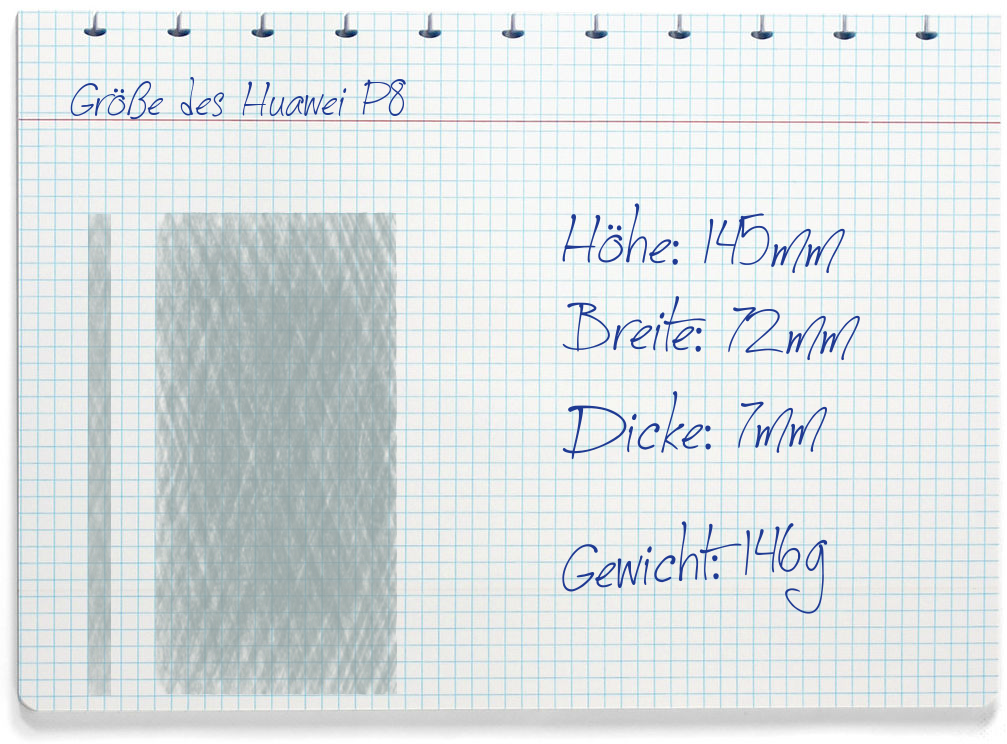 Größe des Huawei P8
Höhe: 145mm
Breite: 72mm
Dicke: 7mm
Gewicht: 146g